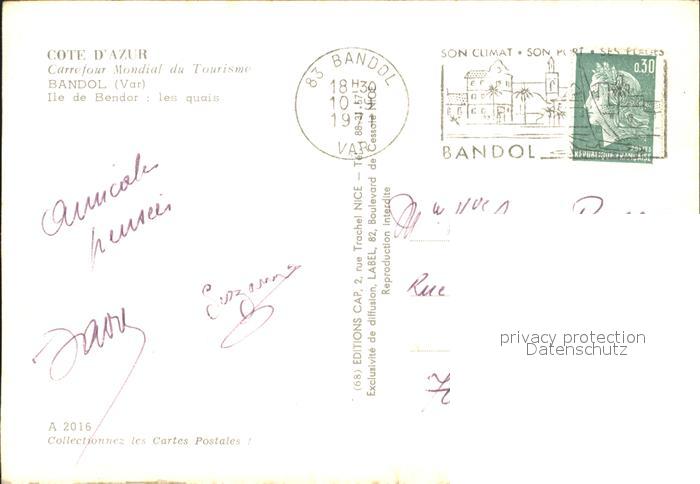 COTE D'AZUR
Carrefour Mondial du Tourisme
BANDOL (Var)
Ile de Bendor : les quais
83 BANDOL
18H30
VAR
SON CLIMAT • SON PORT • SES PLAGES
BANDOL
0,30
POSTES
REPUBLIQUE FRANCAISE
amicales
pensées
Suzanne
(68) EDITIONS CAP, 2, rue Trachel NICE —
Exclusivité de diffusion, LABEL, 82, Boulevard de Cessole NICE
Reproduction Interdite
Rue
privacy protection
Datenschutz
A 2016
Collectionnez les Cartes Postales !